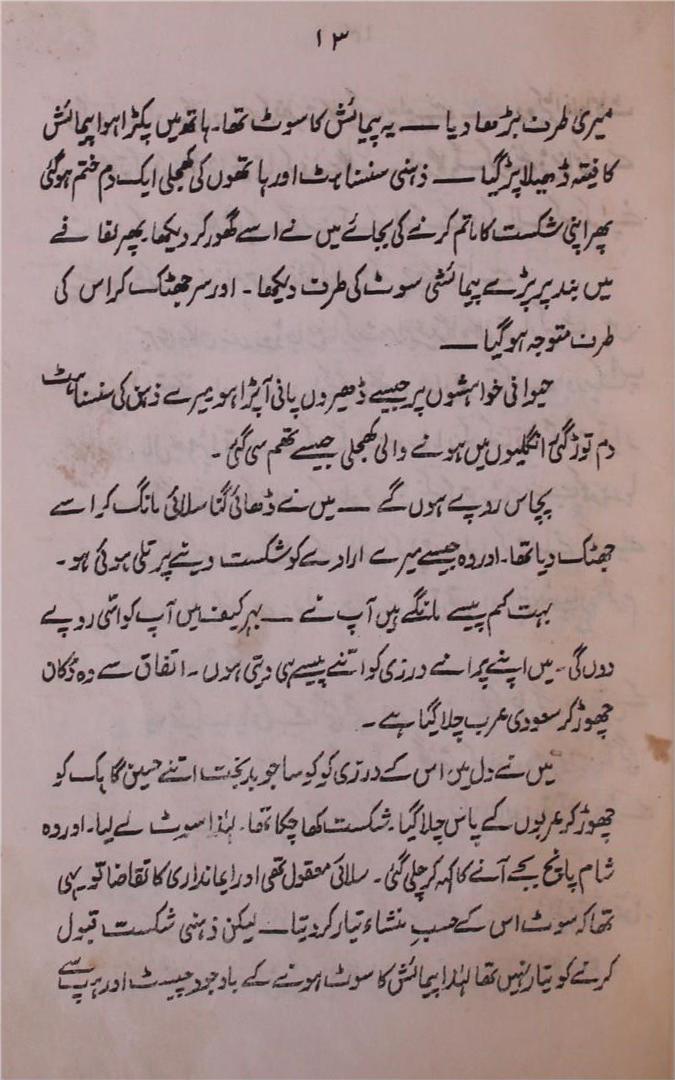 ۱۳
میری طرف بڑھا دیا — یہ پیمائش کا سوٹ تھا۔ ہاتھ میں پکڑا ہوا پیمائش
کا فیتہ ڈھیلا پڑ گیا — ذہنی سنسناہٹ اور ہاتھوں کی کھجلی ایک دم ختم ہو گئی
پھر اپنی شکست کا ماتم کرنے کی بجائے میں نے اسے گھور کر دیکھا پھر لفافے
میں بند پر پڑے پیمائشی سوٹ کی طرف دیکھا۔ اور سر جھٹک کر اس کی
طرف متوجہ ہو گیا —
حیوانی خواہشوں پر جیسے ڈھیروں پانی آ پڑا ہو میرے ذہن کی سنسناہٹ
دم توڑ گئی انگلیوں میں ہونے والی کھجلی جیسے تھم سی گئی۔
پچاس روپے ہوں گے — میں نے ڈھائی گنا سلائی مانگ کر اسے
جھٹک دیا تھا۔ اور وہ جیسے میرے ارادے کو شکست دینے پر تلی ہوئی ہو۔
بہت کم پیسے مانگے ہیں آپ نے — بہر کیف میں آپ کو اسّی روپے
دوں گی۔ میں اپنے پرانے درزی کو اتنے پیسے ہی دیتی ہوں۔ اتفاق سے وہ دکان
چھوڑ کر سعودی عرب چلا گیا ہے۔
میں نے دل میں اس کے درزی کو کوسا جو بدبخت اتنے حسین گاہک کو
چھوڑ کر عربوں کے پاس چلا گیا۔ شکست کھا چکا تھا۔ لہٰذا سوٹ لے لیا۔ اور وہ
شام پانچ بجے آنے کا کہہ کر چلی گئی۔ سلائی معقول تھی اور ایمانداری کا تقاضا تو یہی
تھا کہ سوٹ اس کے حسبِ منشاء تیار کر دیتا — لیکن ذہنی شکست قبول
کرنے کو تیار نہیں تھا لہٰذا پیمائش کا سوٹ ہونے کے باوجود چیسٹ اور ہپ سے